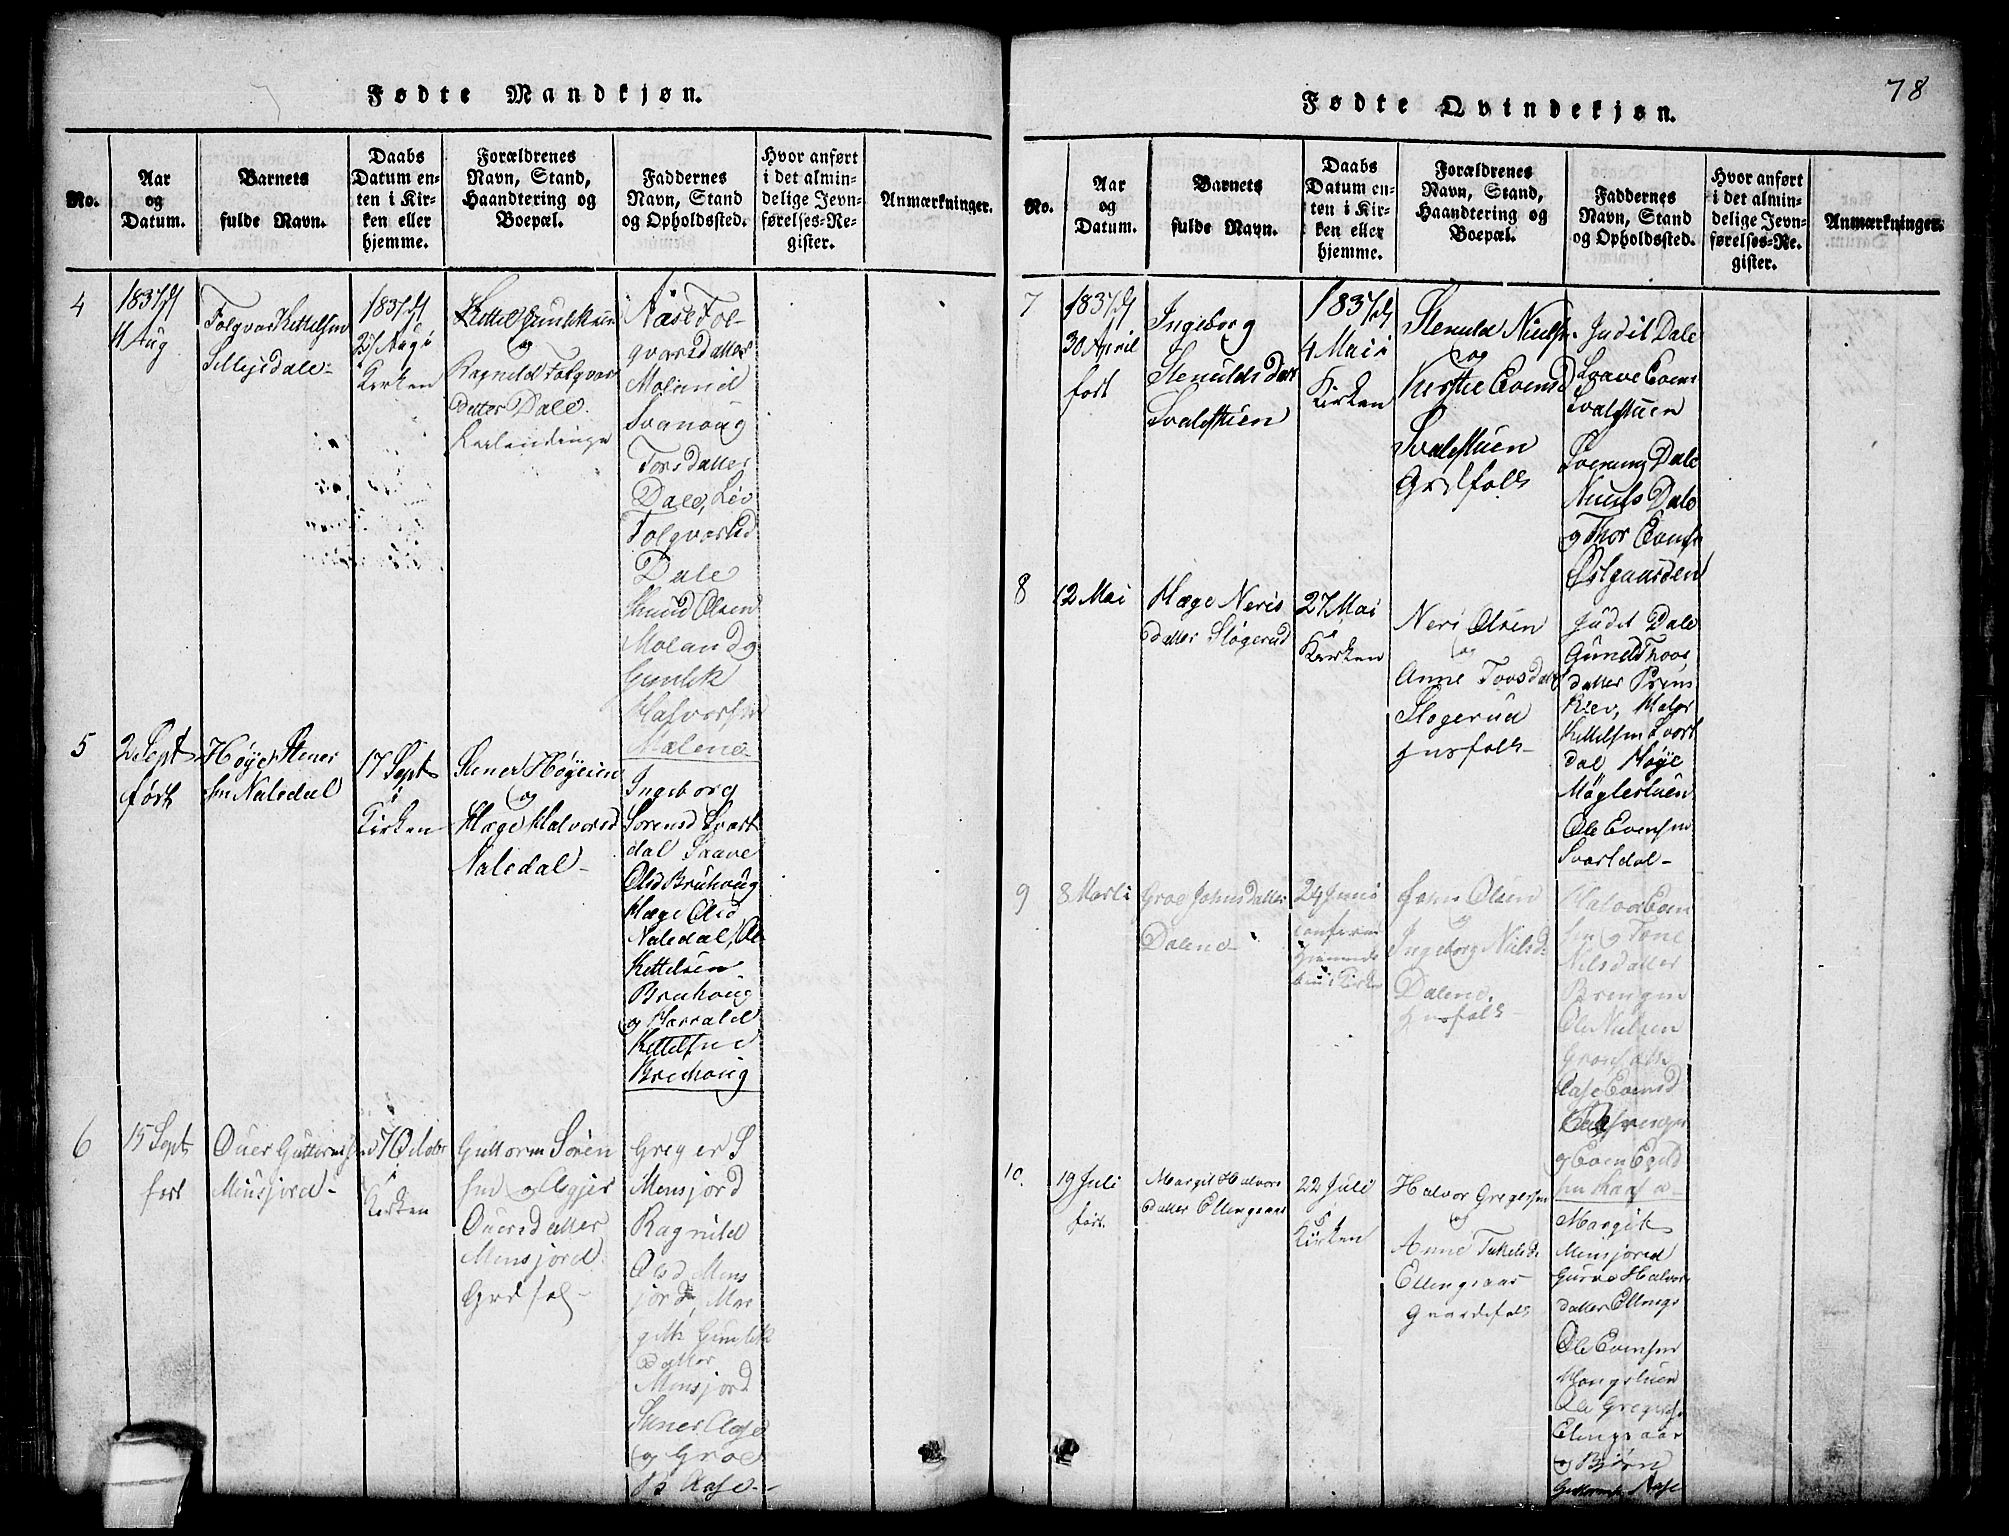 Fødte Mandkjøn.
No.
Aar
og
Datum.
Barnets
fulde Navn.
Daabs
Datum en-
ten i Kir-
ken eller
hjemme.
Forældrenes
Navn, Stand,
Haandtering og
Boepæl.
Faddernes
Navn, Stand
og Opholdssted.
Hvor anført
i det almin-
delige Jevn-
førelses-Re-
gister.
Anmærkninger.
4
1837
11 Aug
Folqvar Kettelsen
1837
27 Aug i
Kirken
Kettel Gunleiksen
og
Ragnild Folqvar
datter Dale
Aase Fol-
qvarsdatter
Moland
Svanoug
Torsdatter
Dale, Liv
Folqvarsd
Dale
Knud Olsen
Moland og
Gunlek
Halvorsen
Malene
5
2 Sept
født
Høye Stener
sen Naledal
17 Sept
i
Kirken
Stener Høyesen
og
Hæge Halvorsd
Naledal
Ingeborg
Sørensd Svart
dal Saave
Olsd Bruhoug
Hæge Olsd
Naledal, Ole
Kettelsen
Bruhoug
og Harrald
Kettelsen
Bruhoug
6
15 Sept
født
Ouer Guttormsen
Minsjord
7 October
i
Kirken
Guttorm Søren
sen og Asgjer
Ouersdatter
Minsjord
Grdfol
Greger S
Mensjord
Ragnild
Olsd Mens
jord, Mar
gith Gunlek
datter
Minsjord
Stener Aase
og Groe
B Aase
78
Fødte Qvindekjøn.
No.
Aar
og
Datum.
Barnets
fulde Navn.
Daabs
Datum en-
ten i Kir-
ken eller
hjemme.
Forældrenes
Navn, Stand,
Haandtering og
Boepæl.
Faddernes
Navn, Stand
og Opholdssted.
Hvor anført
i det almin-
delige Jevn-
førelses-Re-
gister.
Anmærkninger.
7
1837
30 April
født
Ingeborg
Stenulds Datter
Svalestuen
1837
4 Mai i
Kirken
Stenuld Nielsen
og
Kirstie Evensd
Svalestuen
Grdfolk
Judit Dale
Saave Evens
Svalestuen
Sverung Dale
Niels Dale
og Thor Evensen
Østgaarden
8
12 Mai
Hæge Neris
datter Sløgerud
27 Mai
i
Kirken
Neri Olsen
og
Anne Torsdatter
Sløgerud
Husfolk
Judit Dale
Gunild Thors
datter Prins
Klev, Halvor
Kettelsen Svart
dal Høye
Møglestuen
Ole Evensen
Svartdal
9
8 Marti
Groe Johnsdatter
Dalene
24 Juni
John Olsen
og
Ingeborg Nielsd.
Dalene.
Husfolk
Halvor Even
sen og Tone
Nilsdatter
Ole Nielsen
Aase Evensd
og Even Egild
sen Kaasa
10.
19 Juli
født.
Margit Halvors
datter Ellengsaas
22 Juli
i
Kirken
Halvor Gregersen
og
Anne Tarkelsd
Ellengsaas
Gaardefolk
Margith
Mensjord
Gurve Halvors
datter Ellengs
Ole Evensen
Haugstuen
Ole Gregersen
Elengsaas
og Bjørn
Guttormsen Aase